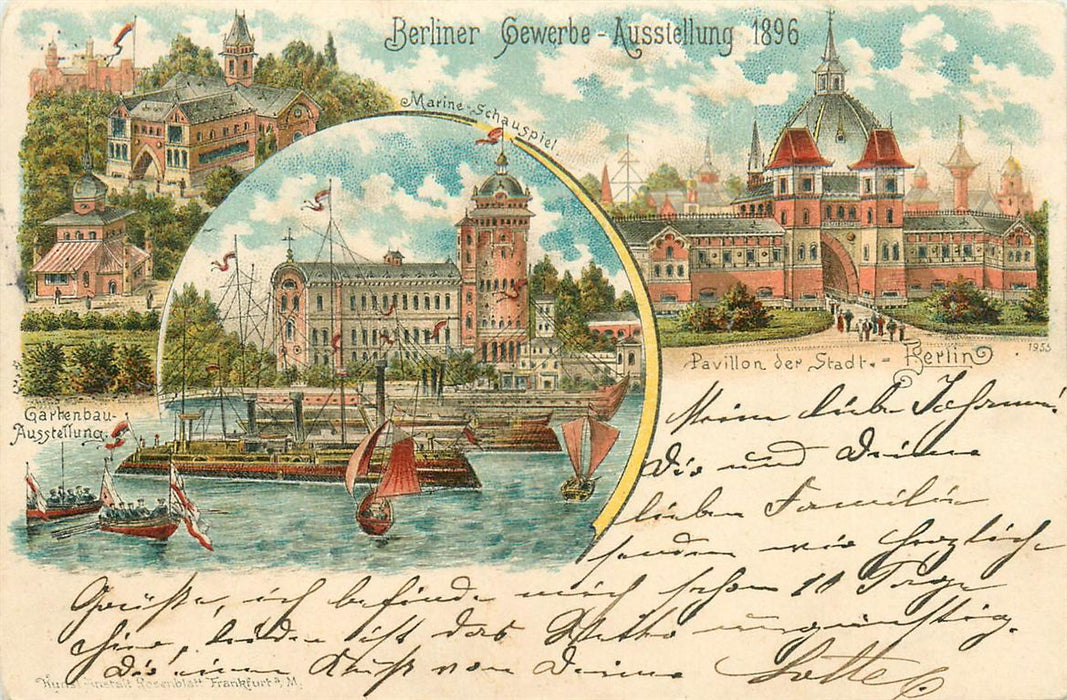 Berliner Gewerbe-Ausstellung 1896
Marine-Schauspiel
Pavillon der Stadt-Berlin
1955
Gartenbau-
Ausstellung
Meine liebe
Dir und Deiner
lieben Familie
senden wir herzliche
Grüße, ich befinde mich schon 11 Tage
hier, leider ist das Wetter ungünstig.
Dir einen Kuß von Deiner Lotte
Kunstanstalt Rosenblatt Frankfurt a. M.